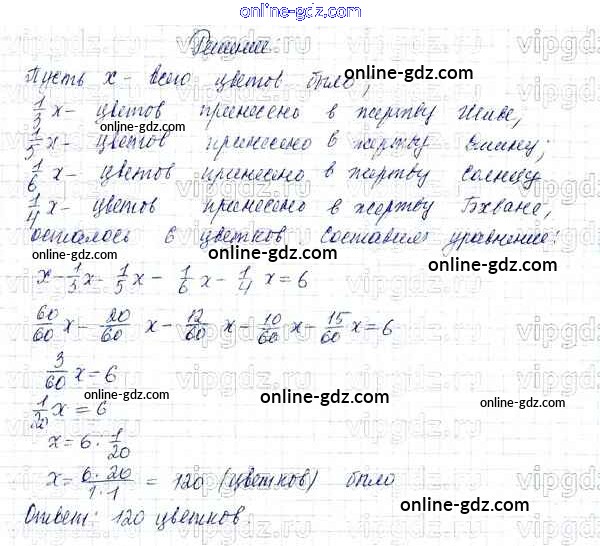 online-gdz.com
Решение:
Пусть x - всего цветов было,
online-gdz.com
1/3 x - цветов принесено в жертву Шиве,
online-gdz.com
1/5 x - цветов принесено в жертву Вишну;
online-gdz.com
1/6 x - цветов принесено в жертву Солнцу
1/4 x - цветов принесено в жертву Бхване,
online-gdz.com
осталось 6 цветков составим уравнение:
online-gdz.com
x - 1/3 x - 1/5 x - 1/6 x - 1/4 x = 6
online-gdz.com
60/60 x - 20/60 x - 12/60 x - 10/60 x - 15/60 x = 6
online-gdz.com
3/60 x = 6
online-gdz.com
1/20 x = 6
online-gdz.com
x = 6 : 1/20
online-gdz.com
x = 6·20/1·1 = 120 (цветков) было
online-gdz.com
Ответ: 120 цветков.
online-gdz.com